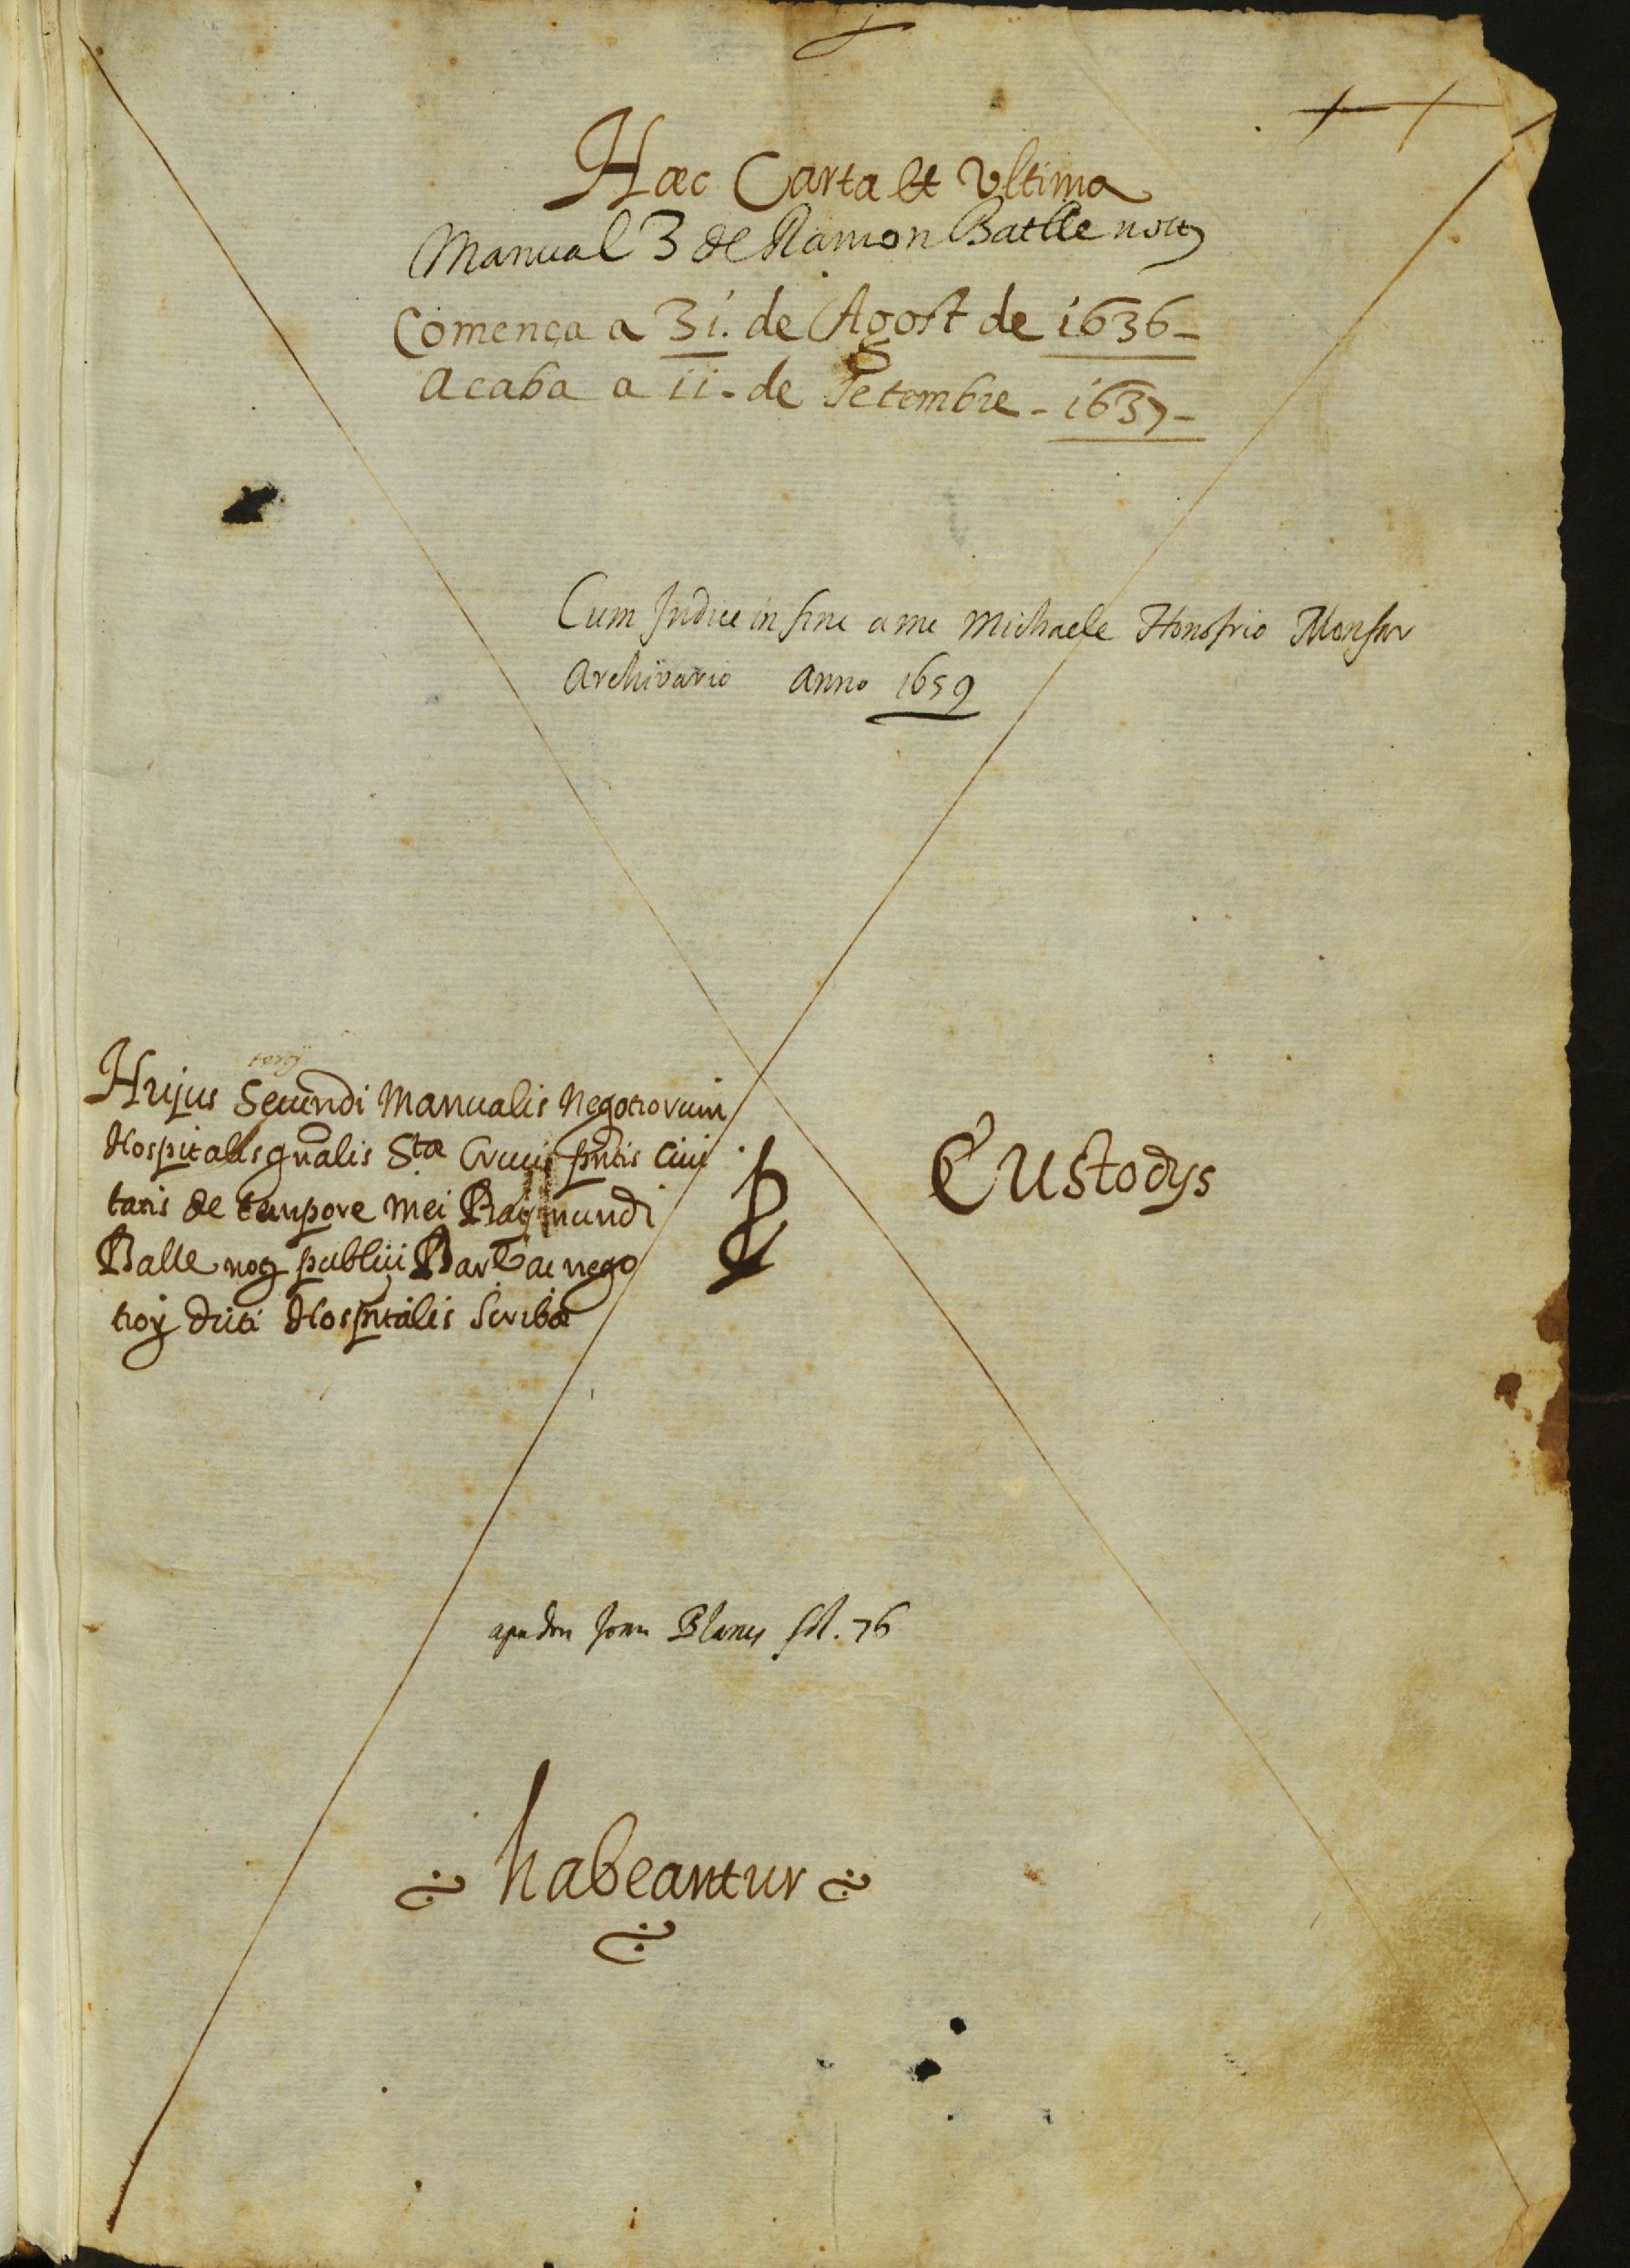 Hæc Carta et Vltima
Manual 3 de Ramon Batlle nott
Comença a 31. de Agost de 1636-
Acaba a 11- de Setembre - 1637-
Cum Indice in fine a me Michaele Honofrio Monfar
Archivario Anno 1659
Hujus Secundi Manualis Negotiorum
Hospitalis gnalis Stæ Crucis pntis Civi
tatis de tempore mei Raymundi
Balle noy publici Bar ac nego
tioy dicti Hospitalis scribæ
Custodys
Joan Blanes fol. 76
habeantur